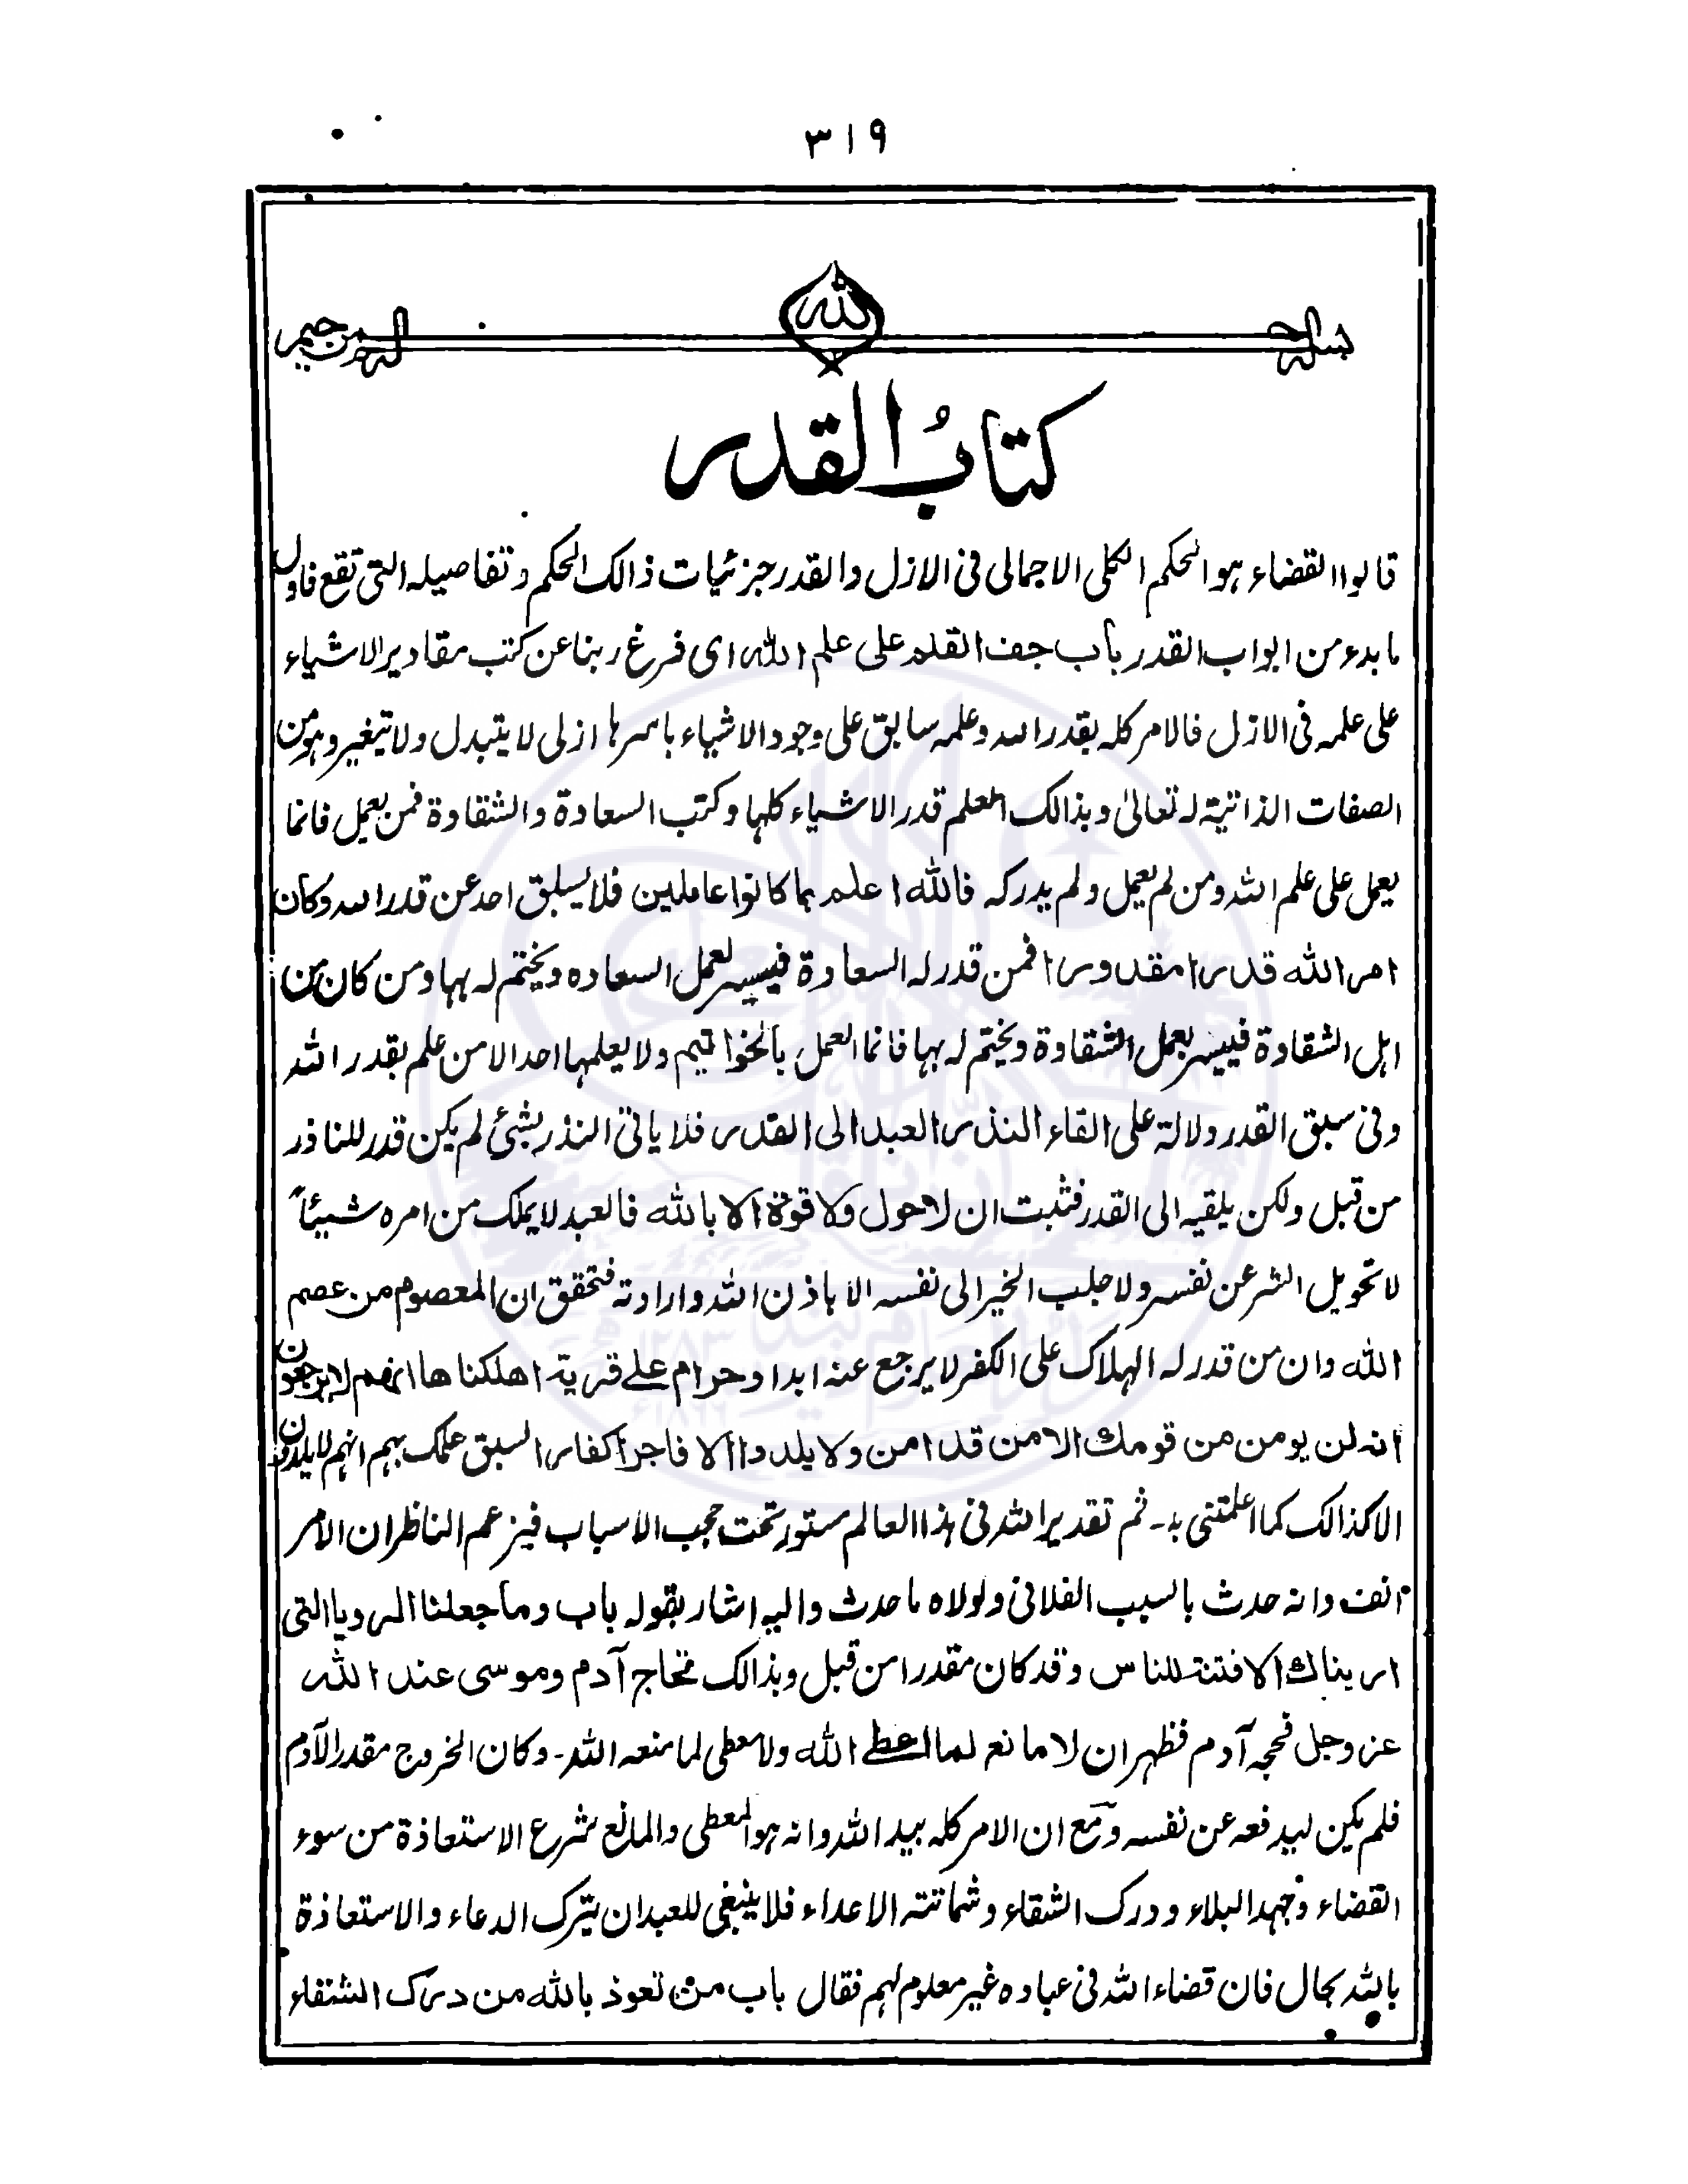 ٣١٩
بسم الله الرحمن الرحيم
كتابُ القدر
قالوا القضاء هو الحكم الكلى الاجمالى فى الازل والقدر جزئيات ذالك الحكم وتفاصيله التى تقع فاول
ما بدء من ابواب القدر باب جف القلم على علم الله اى فرغ ربنا عن كتب مقادير الاشياء
على علمه فى الازل فالامر كله بقدر الله وعلمه سابق على وجود الاشياء باسرها ازلى لا يتبدل ولا يتغير وهو من
الصفات الذاتية له تعالىٰ وبذالك العلم قدر الاشياء كلها وكتب السعادة والشقاوة فمن يعمل فانما
يعمل على علم الله ومن لم يعمل ولم يدركه فالله اعلم بما كانوا عاملين فلا يسبق احد عن قدر الله وكان
امر الله قدرا مقدورا فمن قدر له السعادة فييسر لعمل السعاده ويختم له بها ومن كان من
اهل الشقاوة فييسر بعمل الشقاوة ويختم له بها فانما العمل بالخواتيم ولا يعلمها احد الا من علم بقدر الله
وفى سبق القدر دلالة على القاء النذر العبد الى القدر فلا ياتى النذر بشئ لم يكن قدر للناذر
من قبل ولكن يلقيه الى القدر فثبت ان لا حول ولا قوة الا بالله فالعبد لا يملك من امره شيئاً
لا تحويل الشر عن نفسه ولا جلب الخير الى نفسه الا باذن الله وارادته فتحقق ان المعصوم من عصم
الله وان من قدر له الهلاك على الكفر لا يرجع عنه ابدا وحرام على قرية اهلكنا ها انهم لا يرجعون
انه لن يومن من قومك الا من قد امن ولا يلدوا الا فاجرا كفارا لسبق علمك بهم انهم لا يلدون
الا كذالك كما اعلمتنى به۔ ثم تقدير الله فى هذا العالم ستور تحت حجب الاسباب فيزعم الناظر ان الامر
انف وانه حدث بالسبب الفلانى ولولاه ما حدث واليه اشار بقوله باب وما جعلنا الرويا التى
اريناك الا فتنة للناس وقد كان مقدرا من قبل وبذالك تحاج آدم وموسى عند الله
عز وجل فحجه آدم فظهر ان لا مانع لما اعطى الله ولا معطى لما منعه الله۔ وكان الخروج مقدر الآدم
فلم يكن ليدفعه عن نفسه ومع ان الامر كله بيد الله وانه هو المعطى والمانع شرع الاستعاذة من سوء
القضاء وجهد البلاء ودرك الشقاء وشماتته الاعداء فلا ينبغى للعبد ان يترك الدعاء والاستعاذة
بالله بحال فان قضاء الله فى عباده غير معلوم لهم فقال باب من تعوذ بالله من درك الشقاء